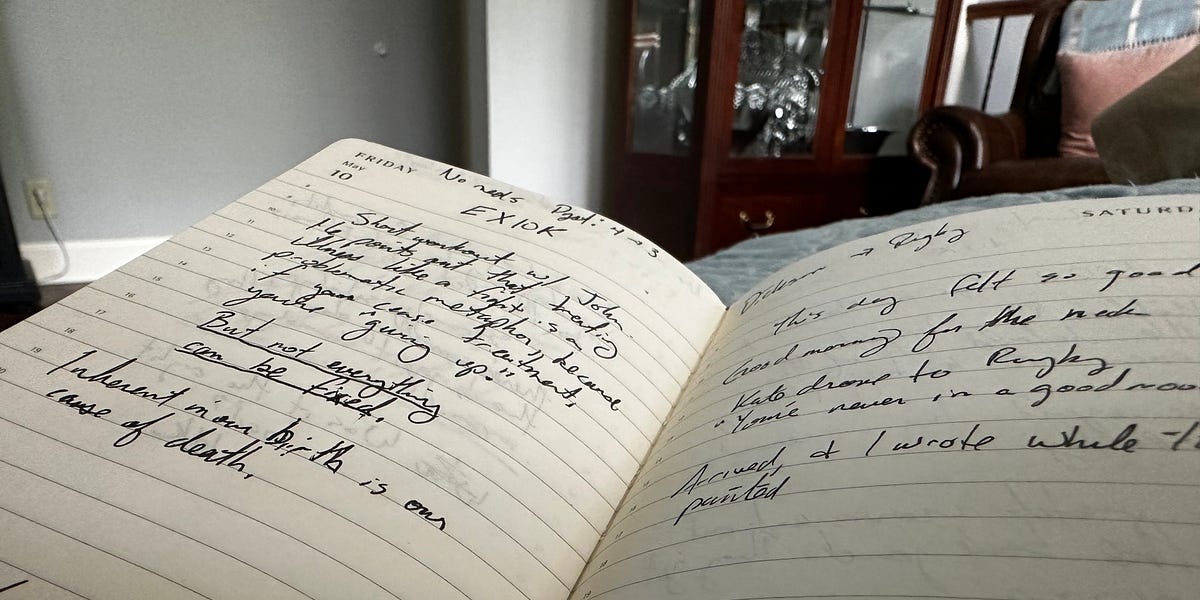 FRIDAY
May
10
No meds Dyst: 4 → 3
EX10K
Short workout w/ John.
He points out that treating
illness like a fight is a
problematic metaphor, because
"if you cease treatment,
you're giving up."
But not everything
can be fixed.
Inherent in our birth is our
cause of death.
SATURD
→ Rugby
This day felt so good
Good morning for the neck
Kate drove to Rugby
"You're never in a good moo
Arrived, & I wrote while
painted
9
10
11
12
13
14
15
16
17
18
19